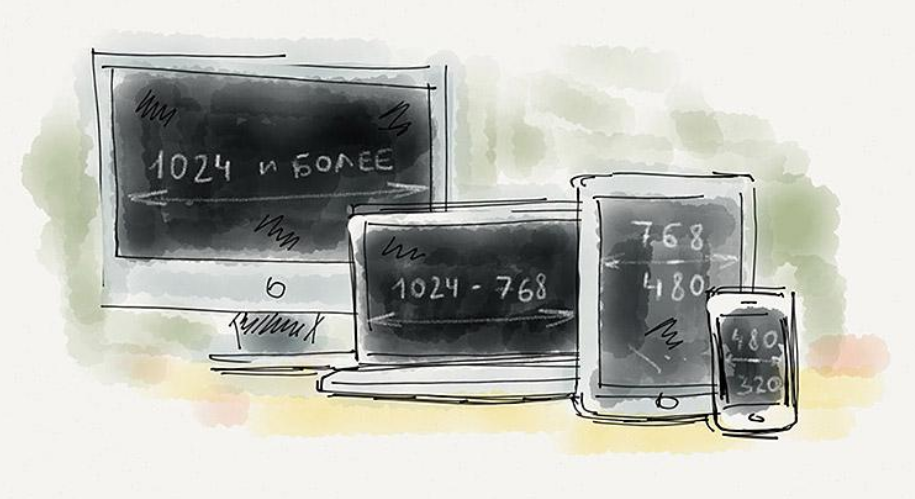 1024 и БОЛЕЕ
1024 - 768
768
480
480
320